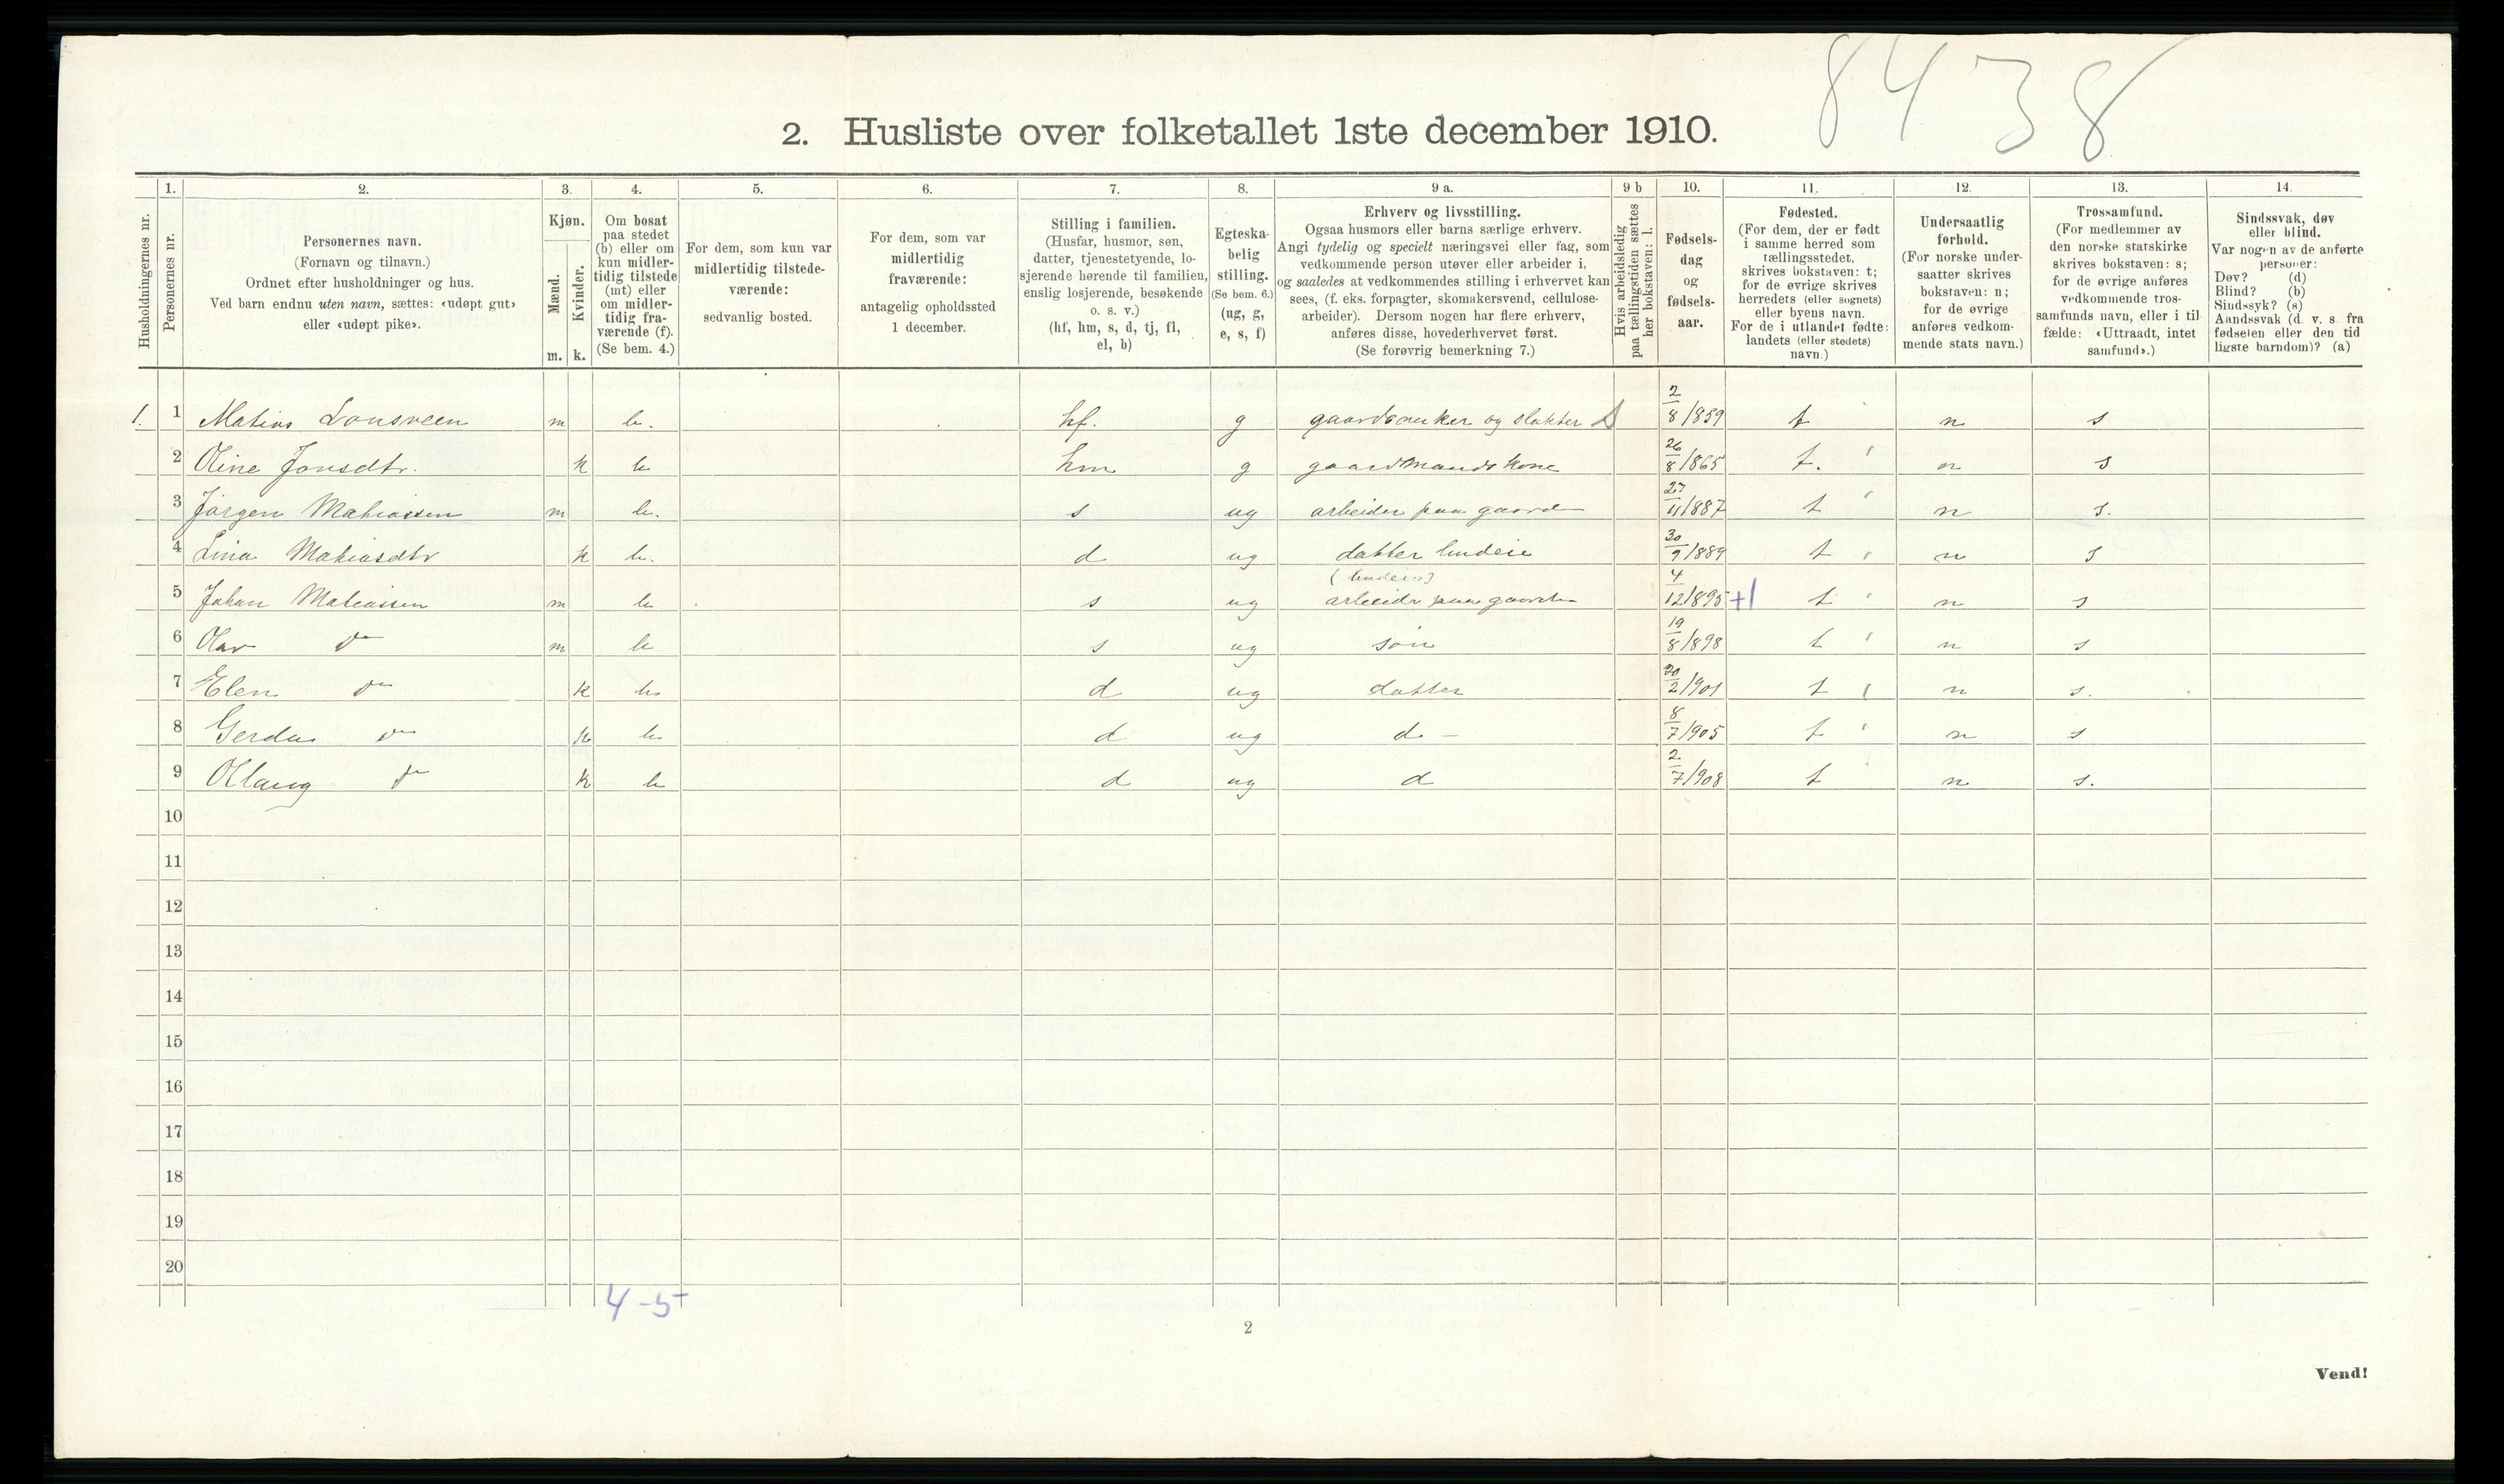 8438
2. Husliste over folketallet 1ste december 1910.
Husholdningernes nr.
1.
Personernes nr.
2.
Personernes navn.
(Fornavn og tilnavn.)
Ordnet efter husholdninger og hus.
Ved barn endnu uten navn, sættes: «udøpt gut»
eller «udøpt pike».
3.
Kjøn.
Mænd.
m.
Kvinder.
k.
4.
Om bosat
paa stedet
(b) eller om
kun midler-
tidig tilstede
(mt) eller
om midler-
tidig fra-
værende (f).
(Se bem. 4.)
5.
For dem, som kun var
midlertidig tilstede-
værende:
sedvanlig bosted.
6.
For dem, som var
midlertidig
fraværende:
antagelig opholdssted
1 december.
7.
Stilling i familien.
(Husfar, husmor, søn,
datter, tjenestetyende, lo-
sjerende hørende til familien,
enslig losjerende, besøkende
o. s. v.)
(hf, hm, s, d, tj, fl,
el, b)
8.
Egteska-
belig
stilling.
(Se bem. 6.)
(ug, g,
e, s, f)
9 a.
Erhverv og livsstilling.
Ogsaa husmors eller barns særlige erhverv.
Angi tydelig og specielt næringsvei eller fag, som
vedkommende person utøver eller arbeider i,
og saaledes at vedkommendes stilling i erhvervet kan
sees, (f. eks. forpagter, skomakersvend, cellulose-
arbeider). Dersom nogen har flere erhverv,
anføres disse, hovederhvervet først.
(Se forøvrig bemerkning 7.)
9 b
Hvis arbeidsledig
paa tællingstiden sættes
her bokstaven: l.
10.
Fødsels-
dag
og
fødsels-
aar.
11.
Fødested.
(For dem, der er født
i samme herred som
tællingsstedet,
skrives bokstaven: t;
for de øvrige skrives
herredets (eller sognets)
eller byens navn.
For de i utlandet fødte:
landets (eller stedets)
navn.)
12.
Undersaatlig
forhold.
(For norske under-
saatter skrives
bokstaven: n;
for de øvrige
anføres vedkom-
mende stats navn.)
13.
Trossamfund.
(For medlemmer av
den norske statskirke
skrives bokstaven: s;
for de øvrige anføres
vedkommende tros-
samfunds navn, eller i til-
fælde: «Uttraadt, intet
samfund».)
14.
Sindssvak, døv
eller blind.
Var nogen av de anførte
personer:
Døv? (d)
Blind? (b)
Sindssyk? (s)
Aandssvak (d. v. s. fra
fødselen eller den tid
ligste barndom)? (a)
1. 1 Matias Lonsveen m b. hf. g gaardbruker og slakter 2/8/859 t n s
2 Oline Jonsdtr. k b hm g gaardmands kone 26/8/865 t. n s
3 Jørgen Matiassen m b. s ug arbeider paa gaarden 27/11/887 t n s.
4 Lina Matiasdtr k b. d ug datter budeie 30/9/889 t n s
(budeie)
5 Johan Matiassen m b s ug arbeidr paa gaarden 4/12/895 +1 t n s
6 Olav do m b s ug søn 19/8/898 t n s
7 Elen do k b d ug datter 20/2/901 t n s.
8 Gerda do k b d ug d - 8/7/905 t n s
9 Ollaug do k b d ug d 2/7/908 t n s.
10
11
12
13
14
15
16
17
18
19
20
4-5
2
Vend!